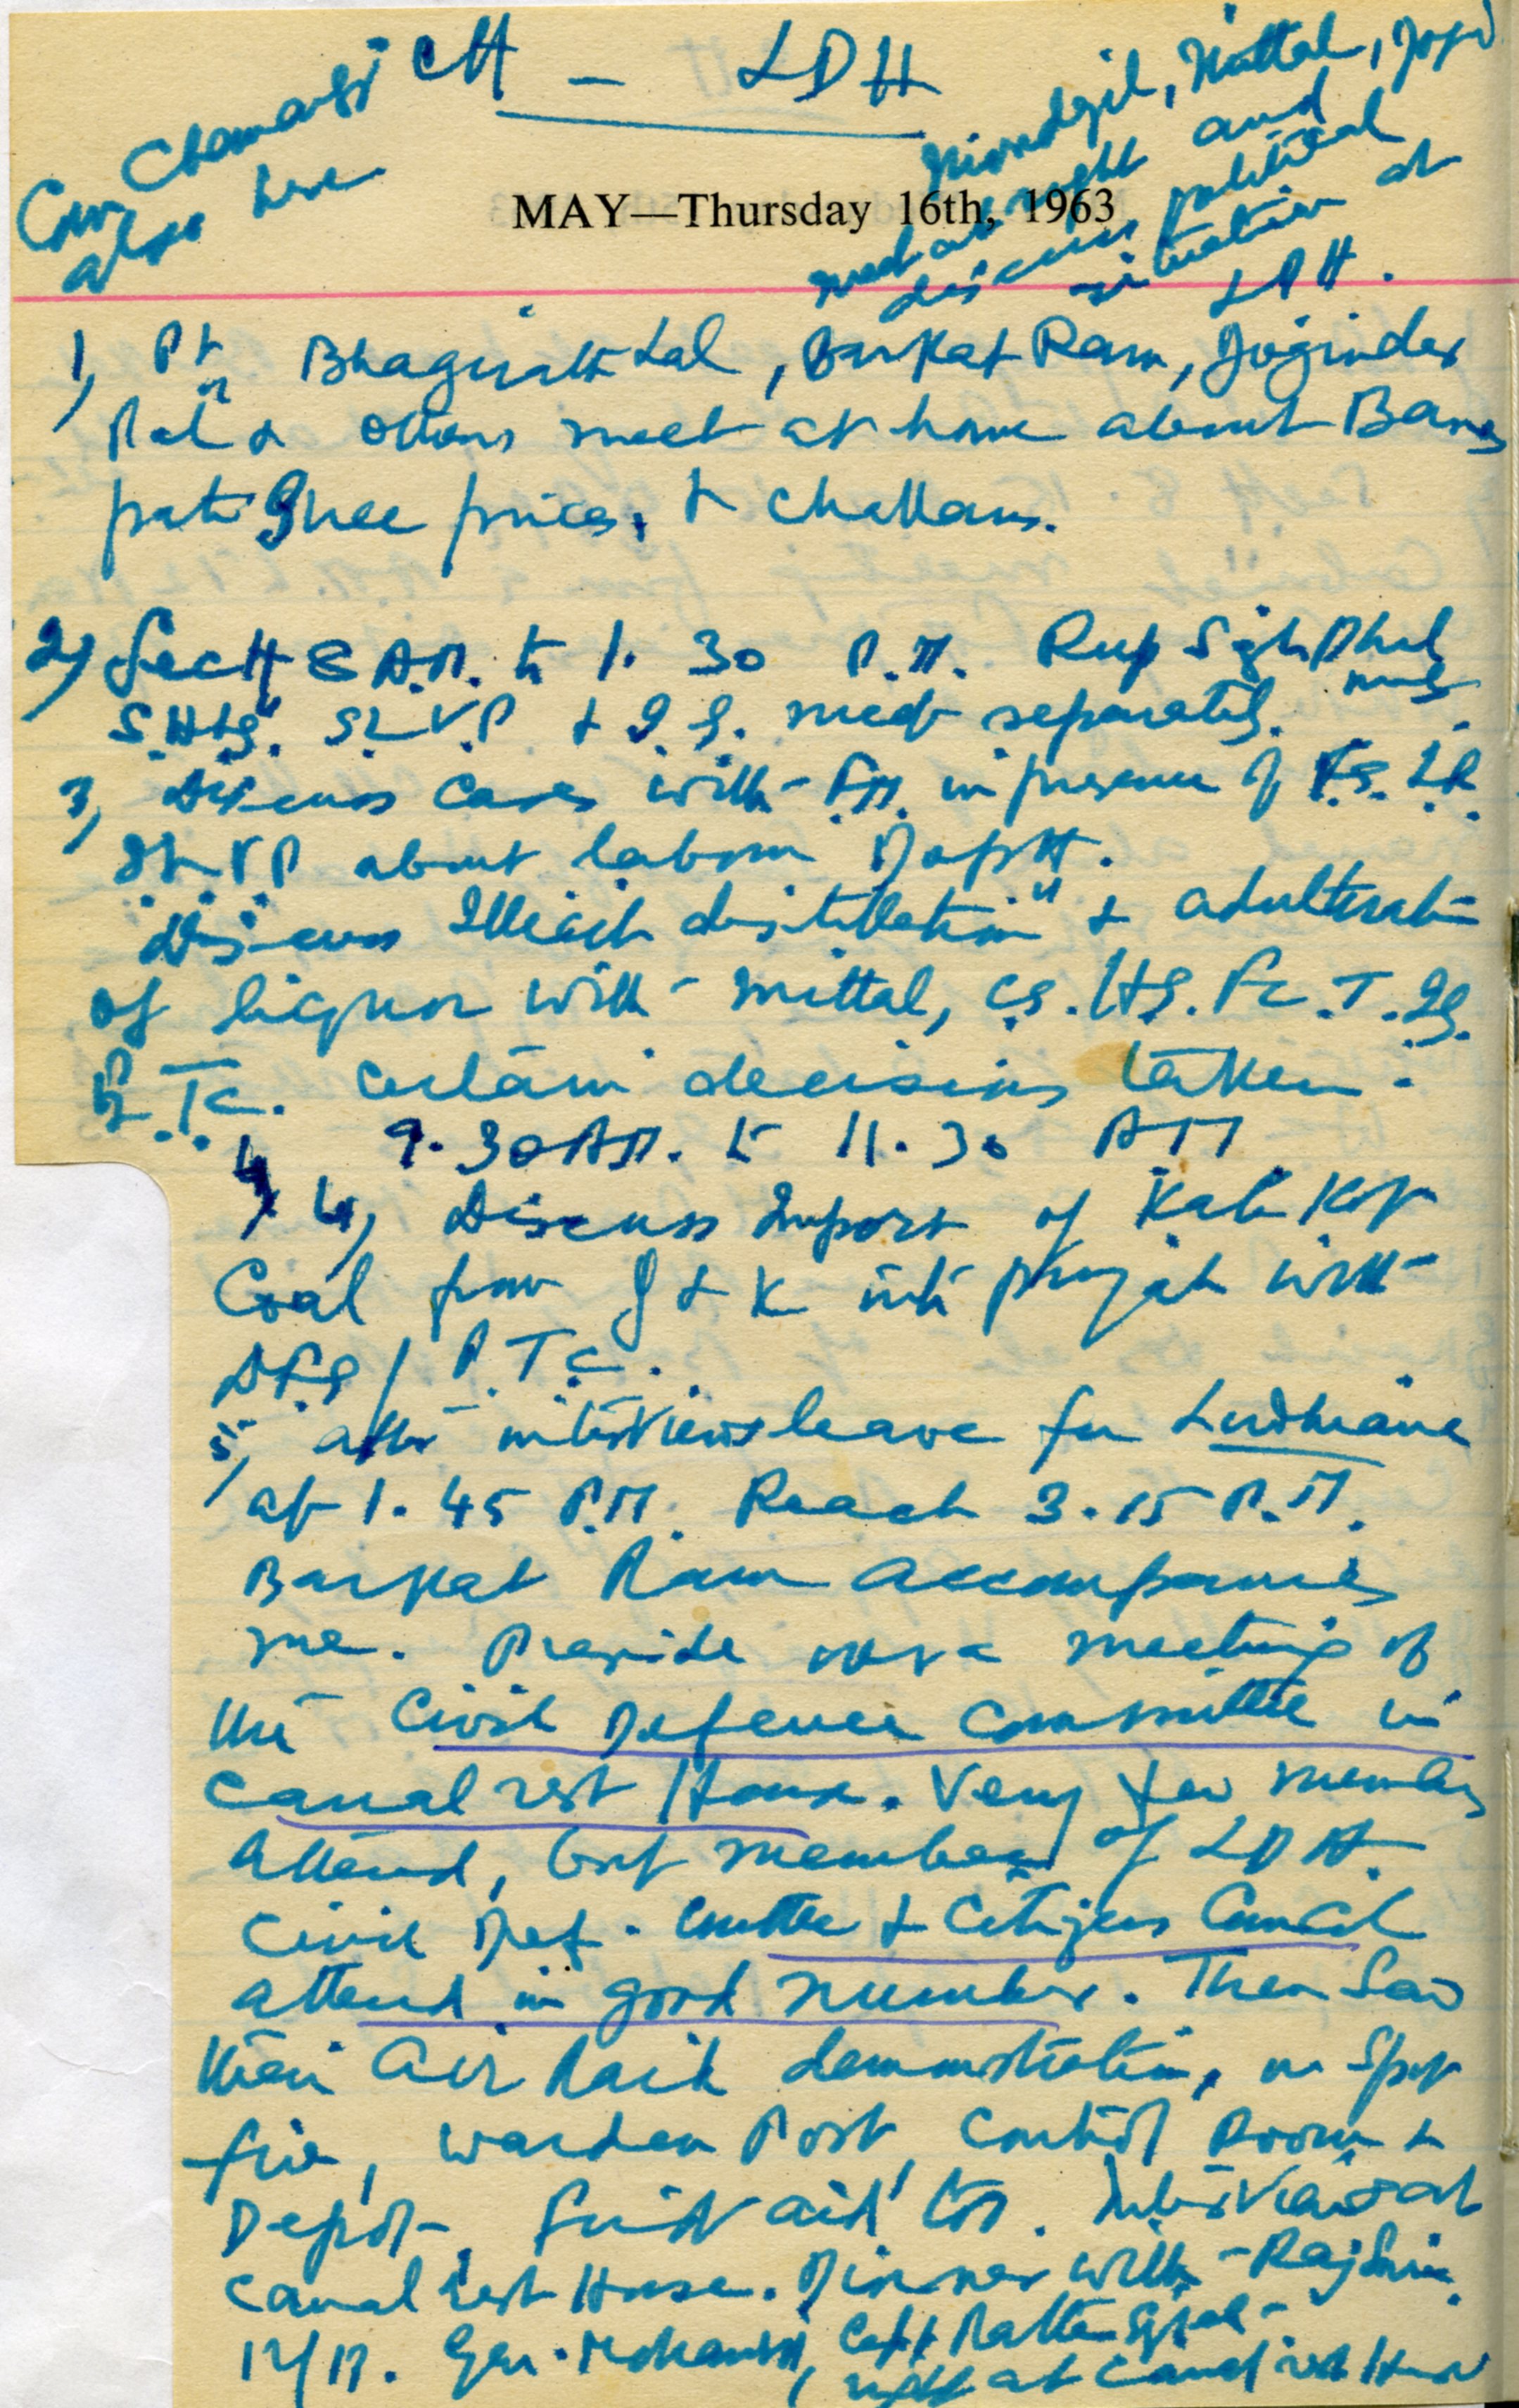 CH - LDH
Com Chamansi
also here
Moudgil, Mittal, Jogi
meet at night and
discuss political
situation at
LDH.
MAY—Thursday 16th, 1963
1, Pt Bhagirath Lal, Barkat Ram, Joginder
Pal & others meet at home about Banas
pati Ghee prices, & challans.
2, Sectt 8 A.M. to 1.30 P.M. Rup Sgh Phul
S.H.S. meet separately.
3, Discuss cases with in presence of
about labour Deptt.
Discuss Illicit distillation & adulterati
of liquor with Mittal, C.S. H.S. F.C.T. I.G.
E.T.C. Certain decisions taken.
9.30 A.M. to 11.30 AM
4, Discuss Import of Kala Kot
Coal from J & K into Punjab with
D.F.S / P.T.C.
5, after interviews leave for Ludhiana
at 1.45 P.M. Reach 3.15 P.M.
Barkat Ram accompanies
me. Preside over a meeting of
the Civil Defence Committee in
Canal rest House. Very few members
attend, but members of LDH.
Civil Def. Cmttee & Citizens Council
attend in good number. Then saw
their Air Raid demonstration, on Spot
fire, Warden Post, Control Room &
Depot, First aid etc. Interviews at
Canal rest House. Dinner with
Gen. Mohansi, Capt Rattan
night at Canal rest House